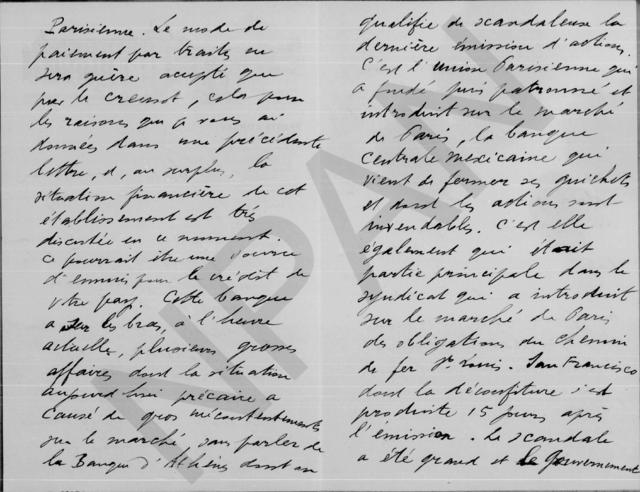 Parisienne. Le mode de
paiement par traites ne
sera guère accepté que
par le Creusot, cela pour
les raisons que je vous ai
données dans une précédente
lettre, et, au surplus, la
situation financière de cet
établissement est très
discutée en ce moment.
Ce pourrait être une source
d'ennuis pour le crédit de
votre pays. Cette banque
a sur les bras, à l'heure
actuelle, plusieurs grosses
affaires dont la situation
aujourd'hui précaire a
causé de gros mécontentements
sur le marché, sans parler de
la Banque d'Athènes dont on
qualifie de scandaleuse la
dernière émission d'actions.
C'est l'union Parisienne qui
a fondé puis patronné et
introduit sur le marché
de Paris, la banque
Centrale mexicaine qui
vient de fermer ses guichets
et dont les actions sont
invendables. C'est elle
également qui était
partie principale dans le
syndicat qui a introduit
sur le marché de Paris
des obligations du chemin
de fer St Louis. San Francisco
dont la déconfiture s'est
produite 15 jours après
l'émission. Le scandale
a été grand et le gouvernement
NPAN